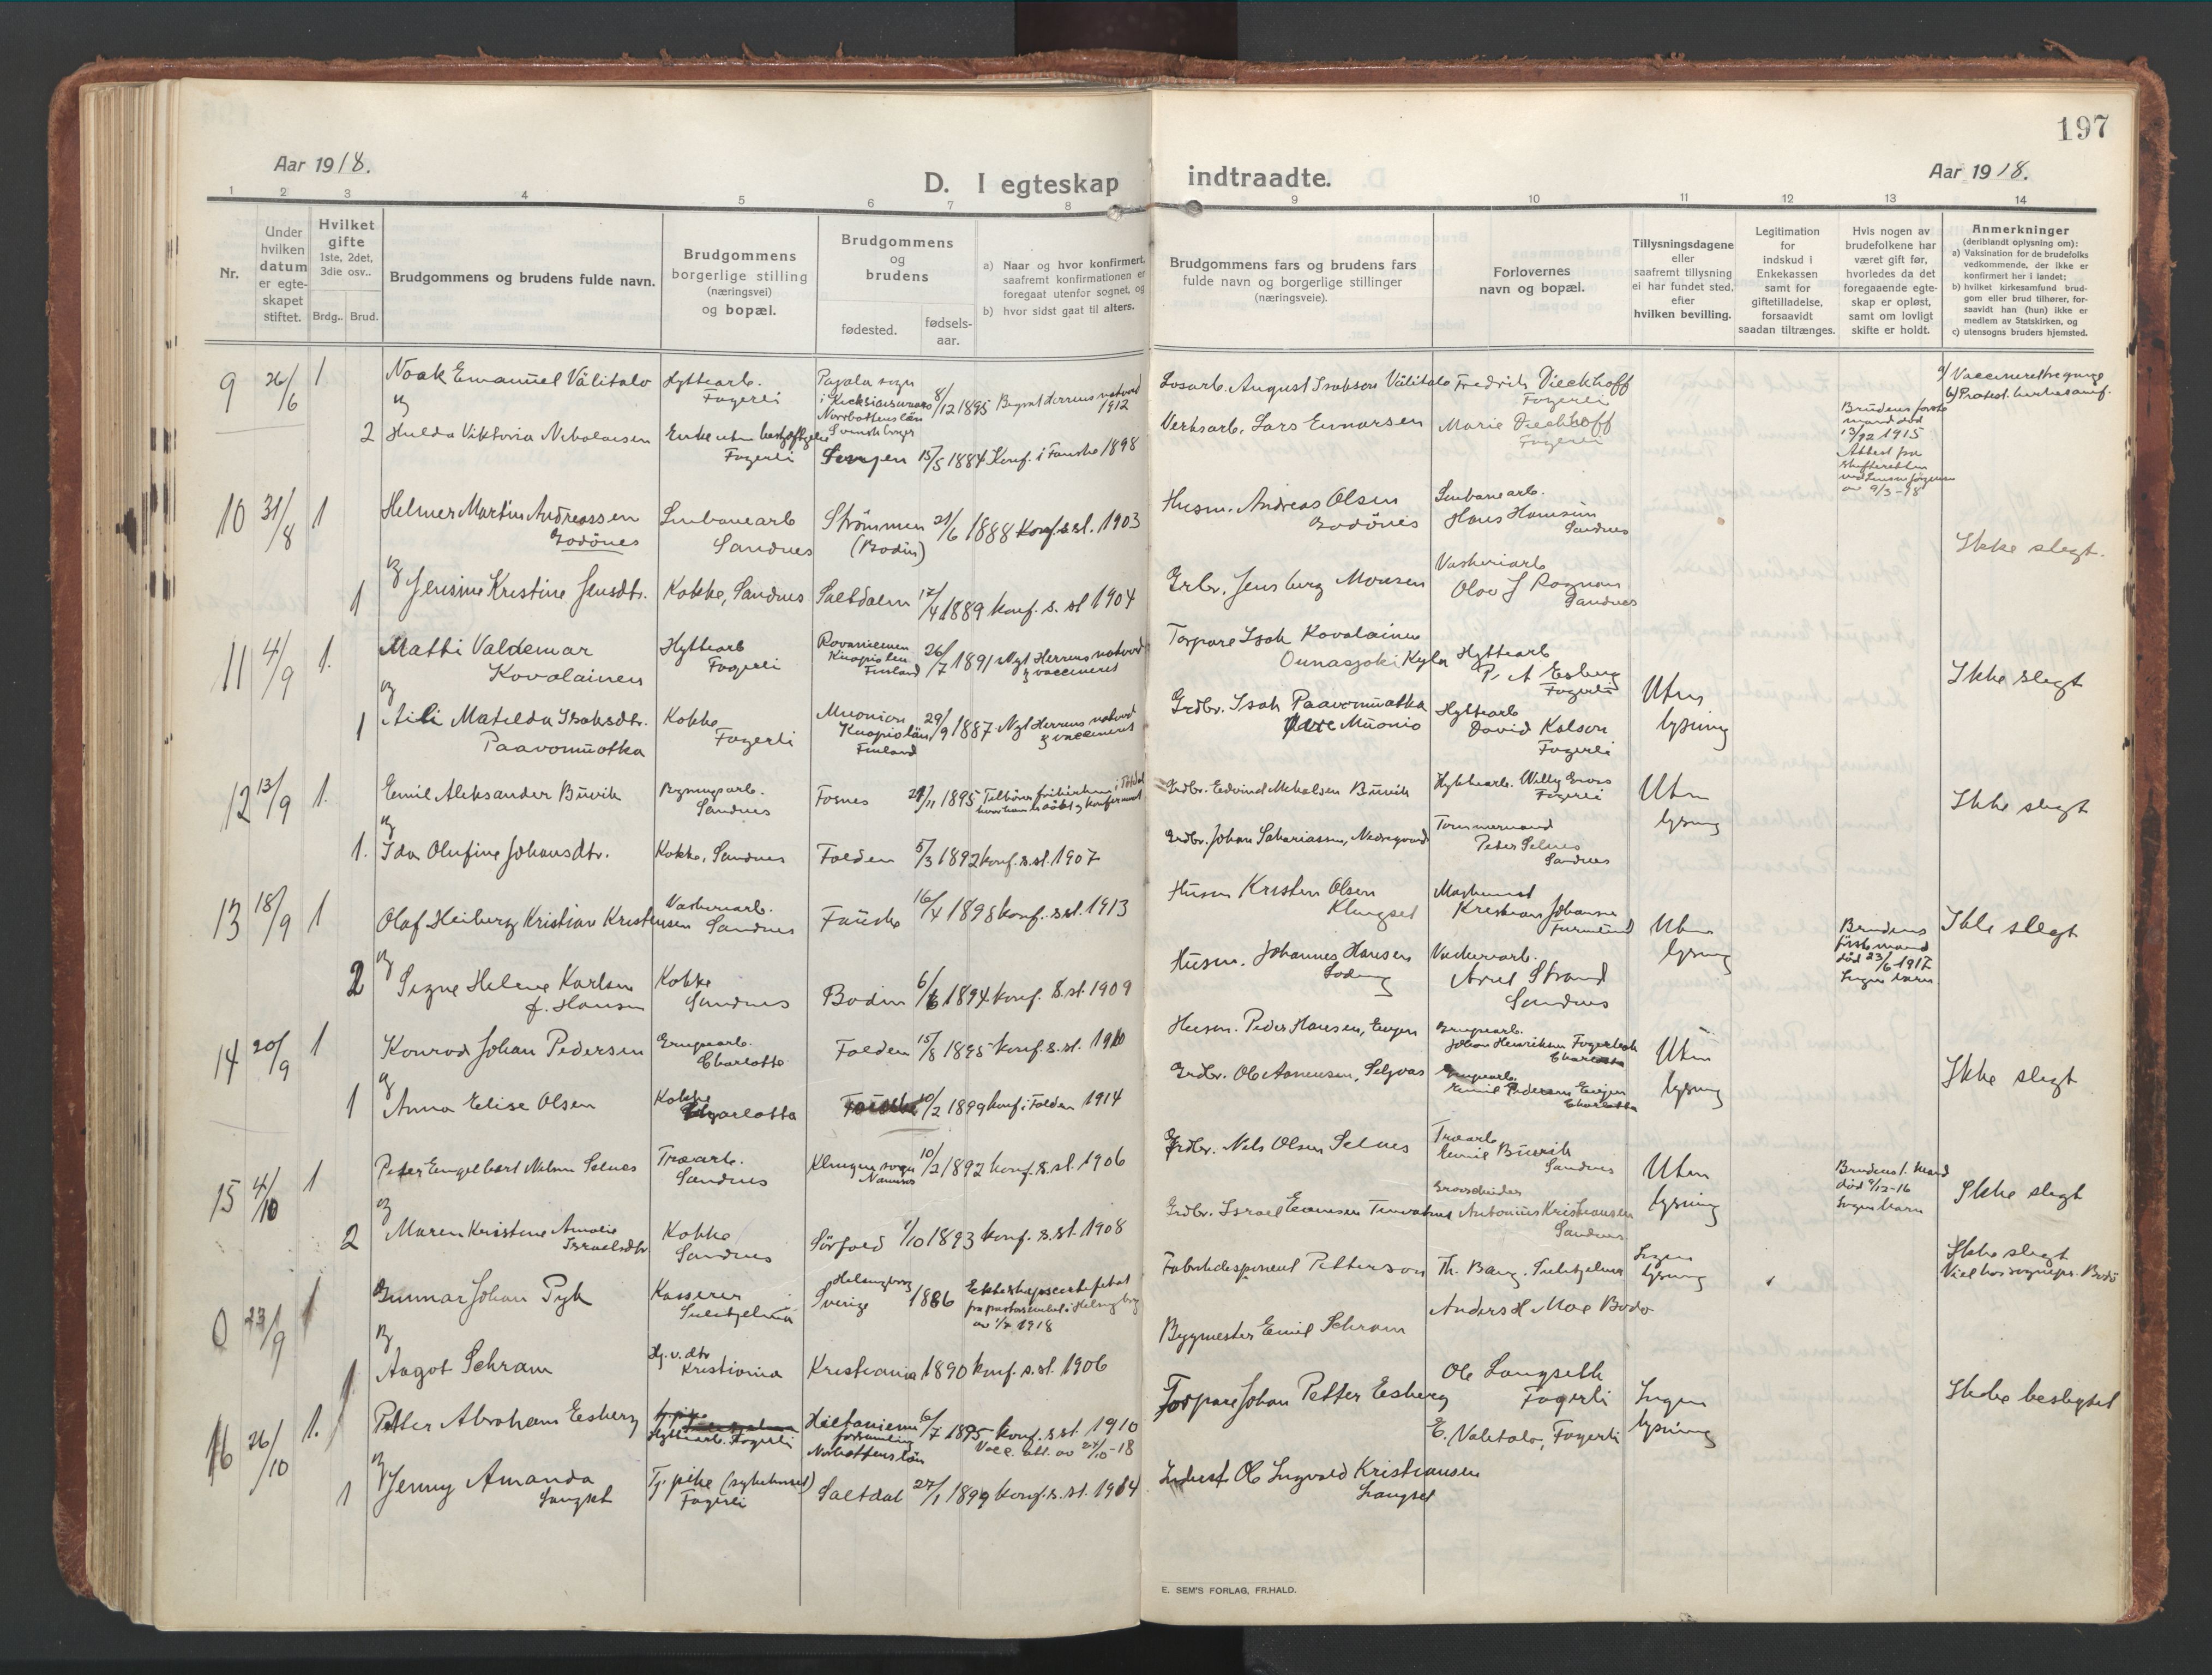 197
Aar 1918.
D. I egteskap indtraadte.
Aar 1918.
1 2 3 4 5 6 7 8 9 10 11 12 13 14
Nr.
Under hvilken datum er egte-skapet stiftet.
Hvilket gifte 1ste, 2det, 3die osv..
Brdg.. Brud.
Brudgommens og brudens fulde navn.
Brudgommens borgerlige stilling (næringsvei) og bopæl.
Brudgommens og brudens
fødested.
fødsels-aar.
a) Naar og hvor konfirmert, saafremt konfirmationen er foregaat utenfor sognet, og
b) hvor sidst gaat til alters.
Brudgommens fars og brudens fars fulde navn og borgerlige stillinger (næringsveie).
Forlovernes navn og bopæl.
Tillysningsdagene eller saafremt tillysning ei har fundet sted, efter hvilken bevilling.
Legitimation for indskud i Enkekassen samt for giftetilladelse, forsaavidt saadan tiltrænges.
Hvis nogen av brudefolkene har været gift før, hvorledes da det foregaaende egte-skap er opløst, samt om lovligt skifte er holdt.
Anmerkninger
(deriblandt oplysning om):
a) Vaksination for de brudefolks vedkommende, der ikke er konfirmert her i landet;
b) hvilket kirkesamfund brud-gom eller brud tilhører, for-saavidt han (hun) ikke er medlem av Statskirken, og
c) utensogns bruders hjemsted.
9 26/6 1 Noak Emanuel Välitalo Hyttearb. Fagerli Pajala sogn i Norrbottens län Svensk borger 8/12 1895 1912 Losarb. August Isakson Välitalo Fredrik Dieckhoff Fagerli
og
2 Hulda Viktoria Nikolaisen Fagerli 15/5 1884 Konf. i Fauske 1898 Verksarb. Lars Einarsen Marie Dieckhoff Fagerli Brudens første mand død 1915 av 9/3-18
10 31/8 1 Helmer Martin Andreassen Godönes Linbanearb Sandnes Strömmen (Bodin) 21/6 1888 Konf. s. st. 1903 Husm. Andreas Olsen Godönes Linbanearb. Hans Hansen Sandnes Ikke slegt.
og
1 Jensine Kristine Jensdtr. Kokke, Sandnes Saltdalen 17/4 1889 konf. s. st 1904 Grbr. Jens Berg Monsen Vaskeriarb Olav J Rognan Sandnes
11 4/9 1. Matti Valdemar Kovalainen Hyttearb Fagerli Rovaniemen Kuopio len Finland 26/7 1891 Nyt Herrens natverd og vaccineret Torpare Isak Kovalainen Ounasjoki Kylä Hyttearb P. A Esberg Fagerli Uten lysning Ikke slegt
og
1 Aili Matilda Isaksdtr. Paavonuotka Kokke Fagerli Muonion Kuopio län Finland 29/9 1887 Nyt Herrens natverd og vaccineret Grdbr. Isak Paavonuotka Muonio Hyttearb David Kolson Fagerli
12 13/9 1. Emil Aleksander Buvik Bygningsarb. Sandnes Fosnes 1895 Grdbr. Edvind Mikalsen Buvik Hyttearb. Willy Gross Fagerli Uten lysning Ikke slegt
og
1. Ida Olufine Johansdtr. Kokke, Sandnes Folden 5/3 1892 konf. s. st. 1907 Grdbr. Johan Sakariassen, Tømmermand Peder Selnes Sandnes
13 18/9 1 Olaf Heiberg Kristian Kristensen Vaskeriarb. Sandnes Fauske 16/4 1898 konf. s. st. 1913 Husm Kristen Olsen Klungset Maskinist Kristian Johansen Furulund Uten lysning Brudens første mand død 23/6 1917 Ingen barn Ikke slegt
og
2 Signe Helene Karlsen f. Hansen Kokke Sandnes Bodin 6/6 1894 konf. s. st 1909 Husm. Johannes Hansen Soding Vaskeriarb. Arnt Strand Sandnes
14 20/9 1 Konrad Johan Pedersen Grupearb. Charlotta Folden 15/8 1895 konf. s. st. 1910 Husm. Peder Hansen, Evjen Grupearb. Johan Henriksen Fagerbak Charlotta Uten lysning Ikke slegt
og
1 Anna Elise Olsen Kokke Charlotta 10/2 1899 konf. i Folden 1914 Grdbr. Ole Antonsen, Seljvas Grupearb. Emil Pedersen Evjen Charlotta
15 4/10 1 Peter Engelbert Nilsen Selnes Træarb. Sandnes Klingen sogn Namsos 10/2 1892 konf. s. st. 1906 Grdbr. Nils Olsen Selnes Træarb Emil Buvik Sandnes Uten lysning Brudens 1. mand død 9/12-16 Ingen barn Ikke slegt
og
2 Maren Kristine Amalie Israelsdtr Kokke Sandnes Sörfold 1/10 1893 konf. s. st. 1908 Grdbr. Israel Evensen Antonius Kristiansen Sandnes
0 23/9 1 Gunnar Johan Pyk Kasserer Sulitjelma Helsingborg Sverige 1886 Ekteskapscertifikat fra pastorsembet i Helsingborg av 1/7 1918 Fabrikdisponent Petterson Th. Bang. Sulitjelma Ingen lysning Ikke slegt Viet hos sognepr. Bodö
og
1 Aagot Schram Hj. v. dtr Kristiania Kristiania 1890 konf. s. st. 1906 Bygmester Emil Schram Anders H Moe Bodø
16 26/10 1. Petter Abraham Eesberg Hyttearb. Fagerli Hietaniemi forsamling Norbottens län 6/7 1895 konf. s. st 1910 Vacc. att. av 24/10-18 Torpare Johan Petter Eesberg Ole Langseth Fagerli Ingen lysning Ikke beslegtet
og
1 Jenny Amanda Langset Tj. pike (sykehuset) Fagerli Saltdal 27/1 1899 konf. s. st. 1914 Ole Ingvald Kristiansen Langset E. Välitalo, Fagerli
E. SEM'S FORLAG, FR.HALD.